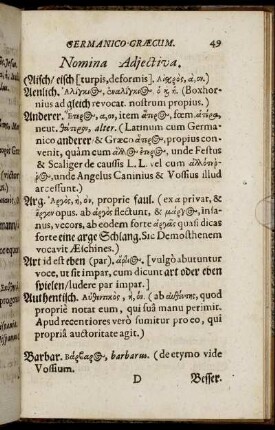 GERMANICO-GRÆCUM. 49
Nomina Adjectiva.
(Aisch/ eisch [turpis, deformis]. Αἰσχρὸς, ὰ, ον.)
Aenlich. Ἀλίγκιος, ἐναλίγκιος ὁ, ἡ. (Boxhor-
nius ad gleich revocat. nostrum propius.)
Anderer. Ἕτερος, α, ον, item ἅτερος, fœm. ἁτέρα,
neut. θάτερον, alter. (Latinum cum Germa-
nico anderer & Græco ἅτερος, propius con-
venit, quàm cum ἄλλος ὅτερος, unde Festus
& Scaliger de caussis L. L. vel cum
unde Angelus Caninius & Vossius illud
arcessunt.)
Arg. Ἀργὸς, ἡ, ὸν. proprie faul. (ex a privat, &
ἔργον opus. ab ἀργὸς flectunt, & μάργος, insa-
nus, vecors, ab eodem forte ἀργᾶς quasi dicas
forte eine arge Schlang. Sic Demosthenem
vocavit Æschines.)
Art id est eben (par), ἄρτιος. [vulgò abutuntur
voce, ut sit impar, cum dicunt art oder eben
spielen/ ludere par impar.]
Authentisch. Αὐθεντικὸς, ὴ, ὸν. (ab αὐθέντης, quod
propriè notat eum, qui suâ manu perimit.
Apud recentiores verò sumitur pro eo, qui
propriâ auctoritate agit.)
Barbar. Βάρβαρος, barbarus. (de etymo vide
Vossium.
D Besser.